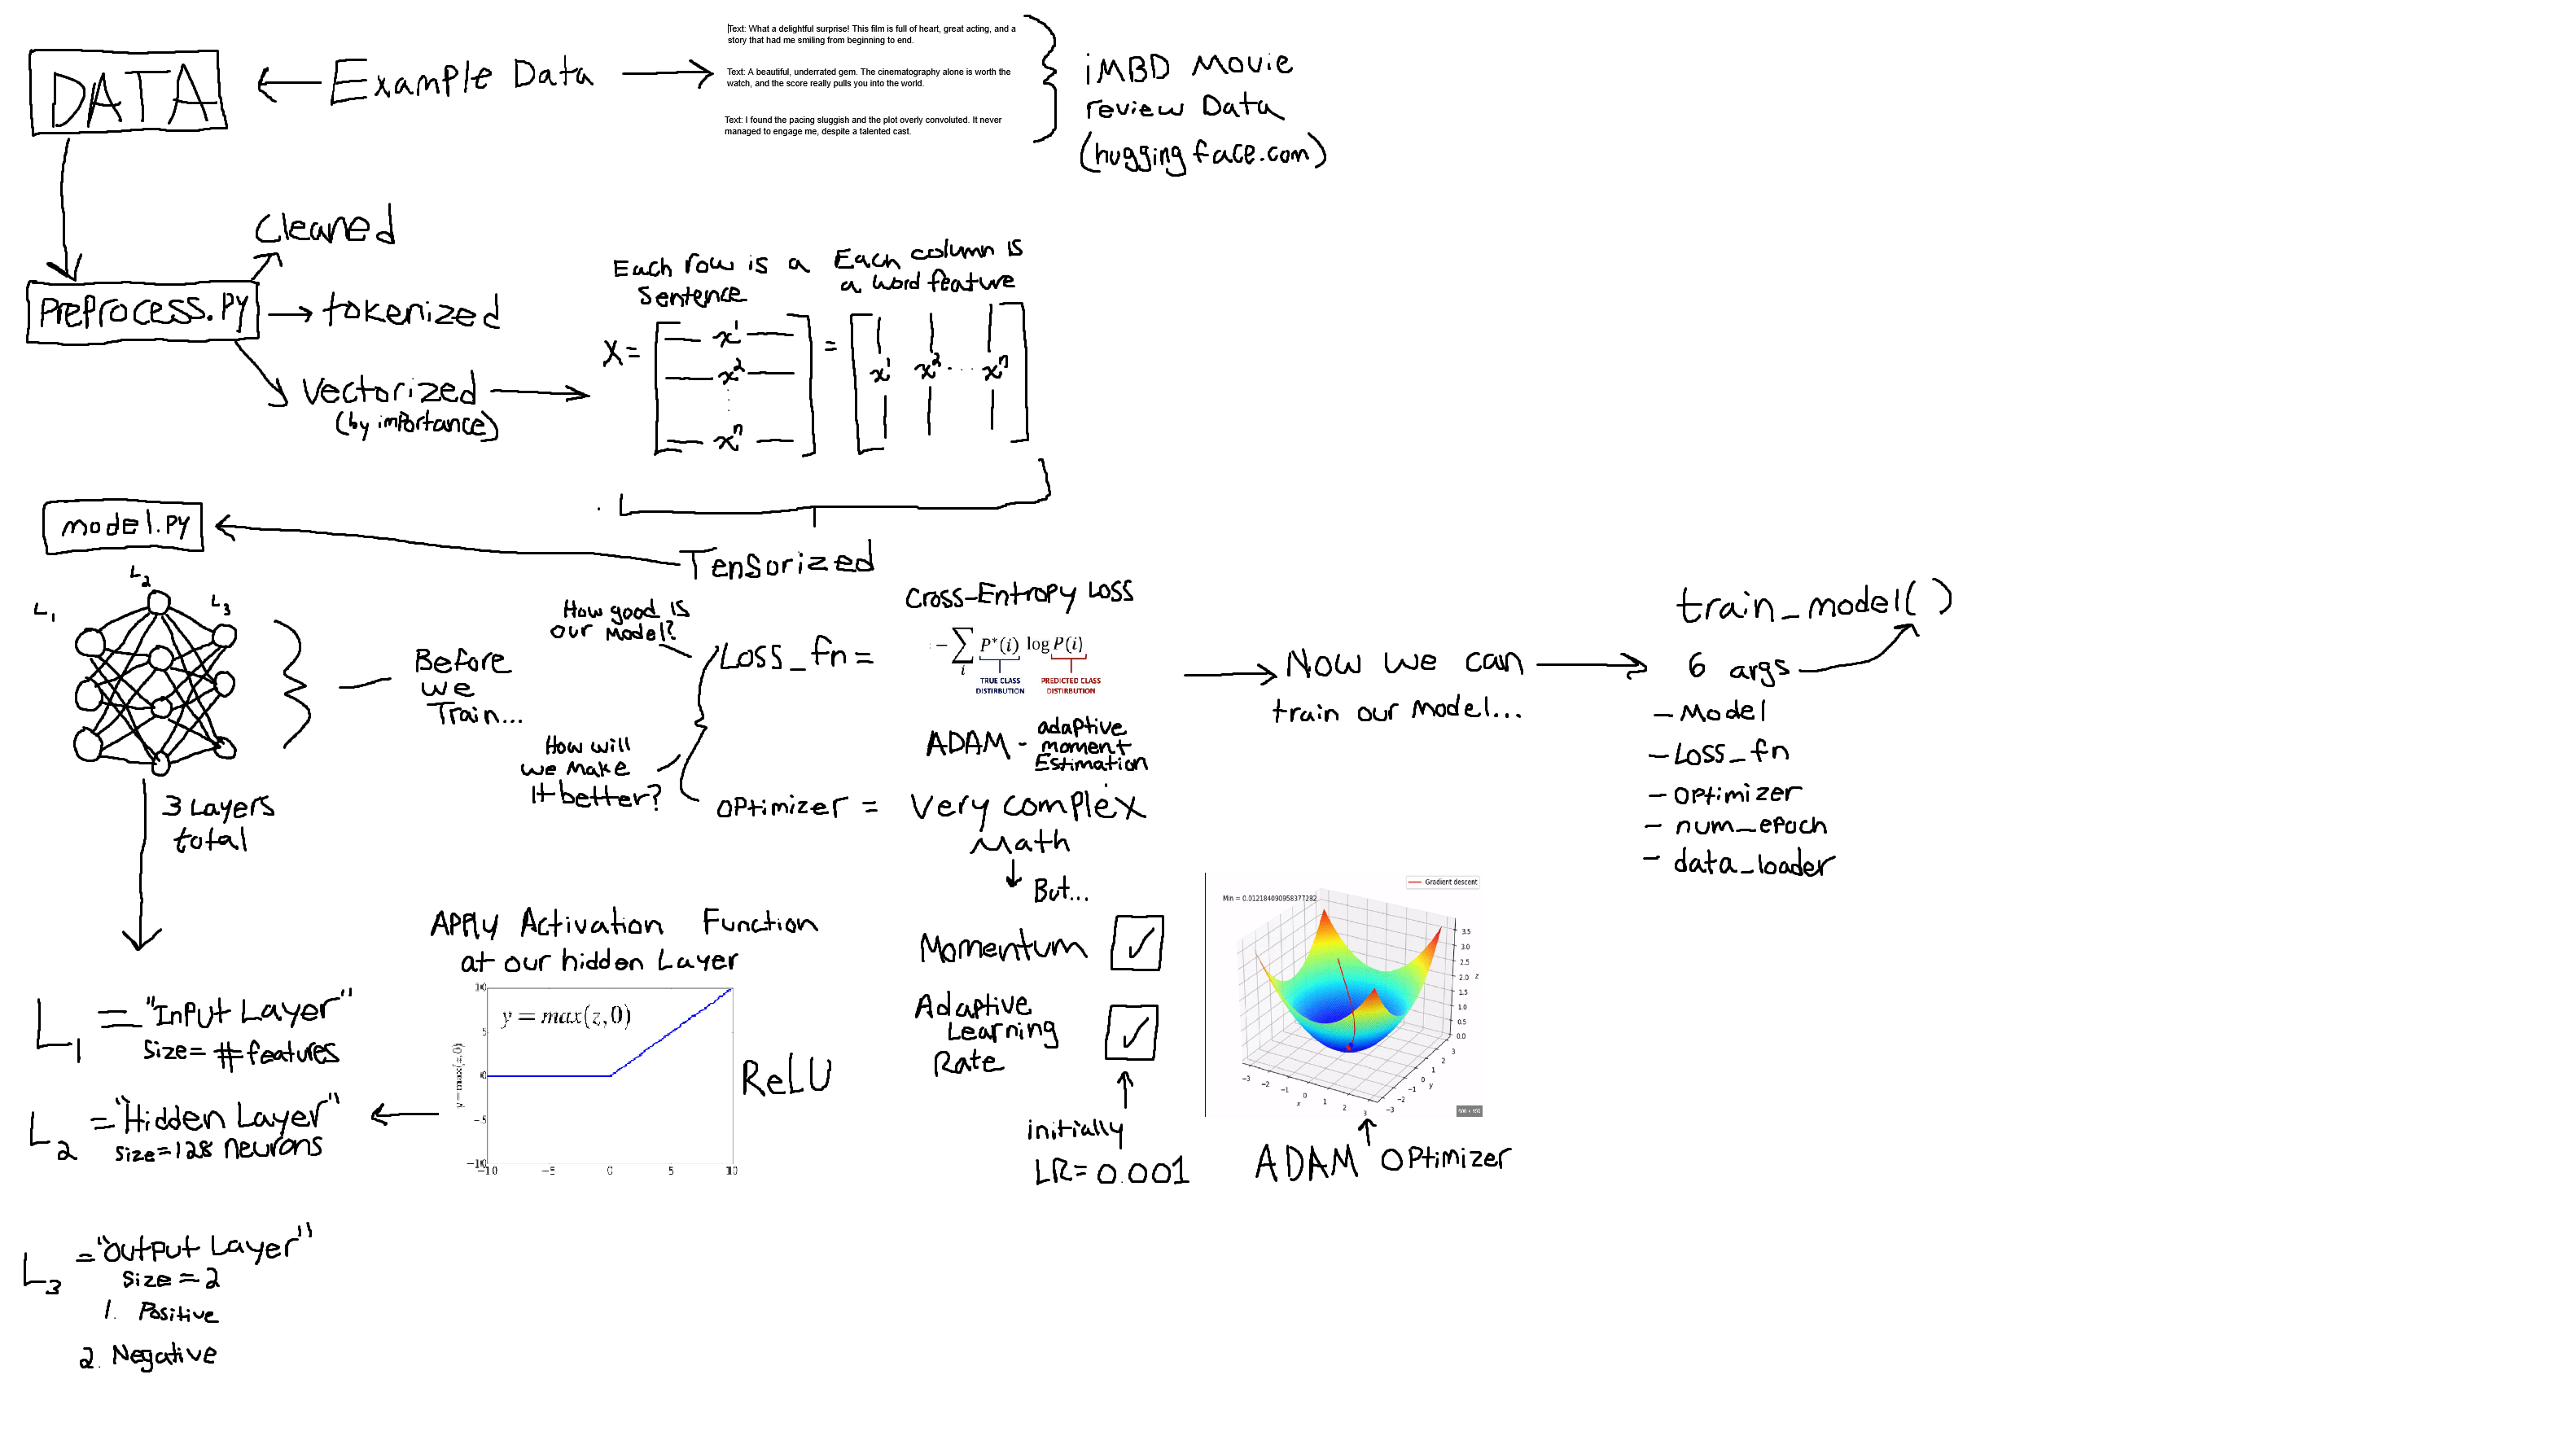 DATA
Example Data
Text: What a delightful surprise! This film is full of heart, great acting, and a
story that had me smiling from beginning to end.
Text: A beautiful, underrated gem. The cinematography alone is worth the
watch, and the score really pulls you into the world.
Text: I found the pacing sluggish and the plot overly convoluted. It never
managed to engage me, despite a talented cast.
iMBD Movie
review Data
(huggingface.com)
Cleaned
PreProcess.Py
tokenized
Vectorized
(by importance)
Each row is a
Sentence
Each column is
a word feature
X = [ x¹ x² ⋮ xⁿ ] = [ x¹ x² ... xⁿ ]
model.Py
Tensorized
L₁
L₂
L₃
3 Layers
total
Before
we
Train...
How good is
our Model?
Loss_fn =
Cross-Entropy Loss
- ∑ᵢ P*(i) log P(i)
TRUE CLASS
DISTIRBUTION
PREDICTED CLASS
DISTIRBUTION
How will
we Make
it better?
OPtimizer =
ADAM - adaptive
moment
Estimation
Very complex
Math
But...
Momentum ✓
Adaptive
Learning
Rate ✓
initially
LR = 0.001
Now we can
train our Model...
train_model()
6 args
- Model
- Loss_fn
- optimizer
- num_epoch
- data_loader
Gradient descent
Min = 0.012184090958377282
3.5
3.0
2.5
2.0
1.5
1.0
0.5
0.0
z
-3 -2 -1 0 1 2 3
x
-3 -2 -1 0 1 2 3
y
ADAM OPtimizer
APPly Activation Function
at our hidden Layer
y = max(z,0)
y=max(z,0)
10
5
0
-5
-10
-10 -5 0 5 10
ReLU
L₁ = "InPut Layer"
Size = # features
L₂ = "Hidden Layer"
Size = 128 neurons
L₃ = "OutPut Layer"
Size = 2
1. Positive
2. Negative